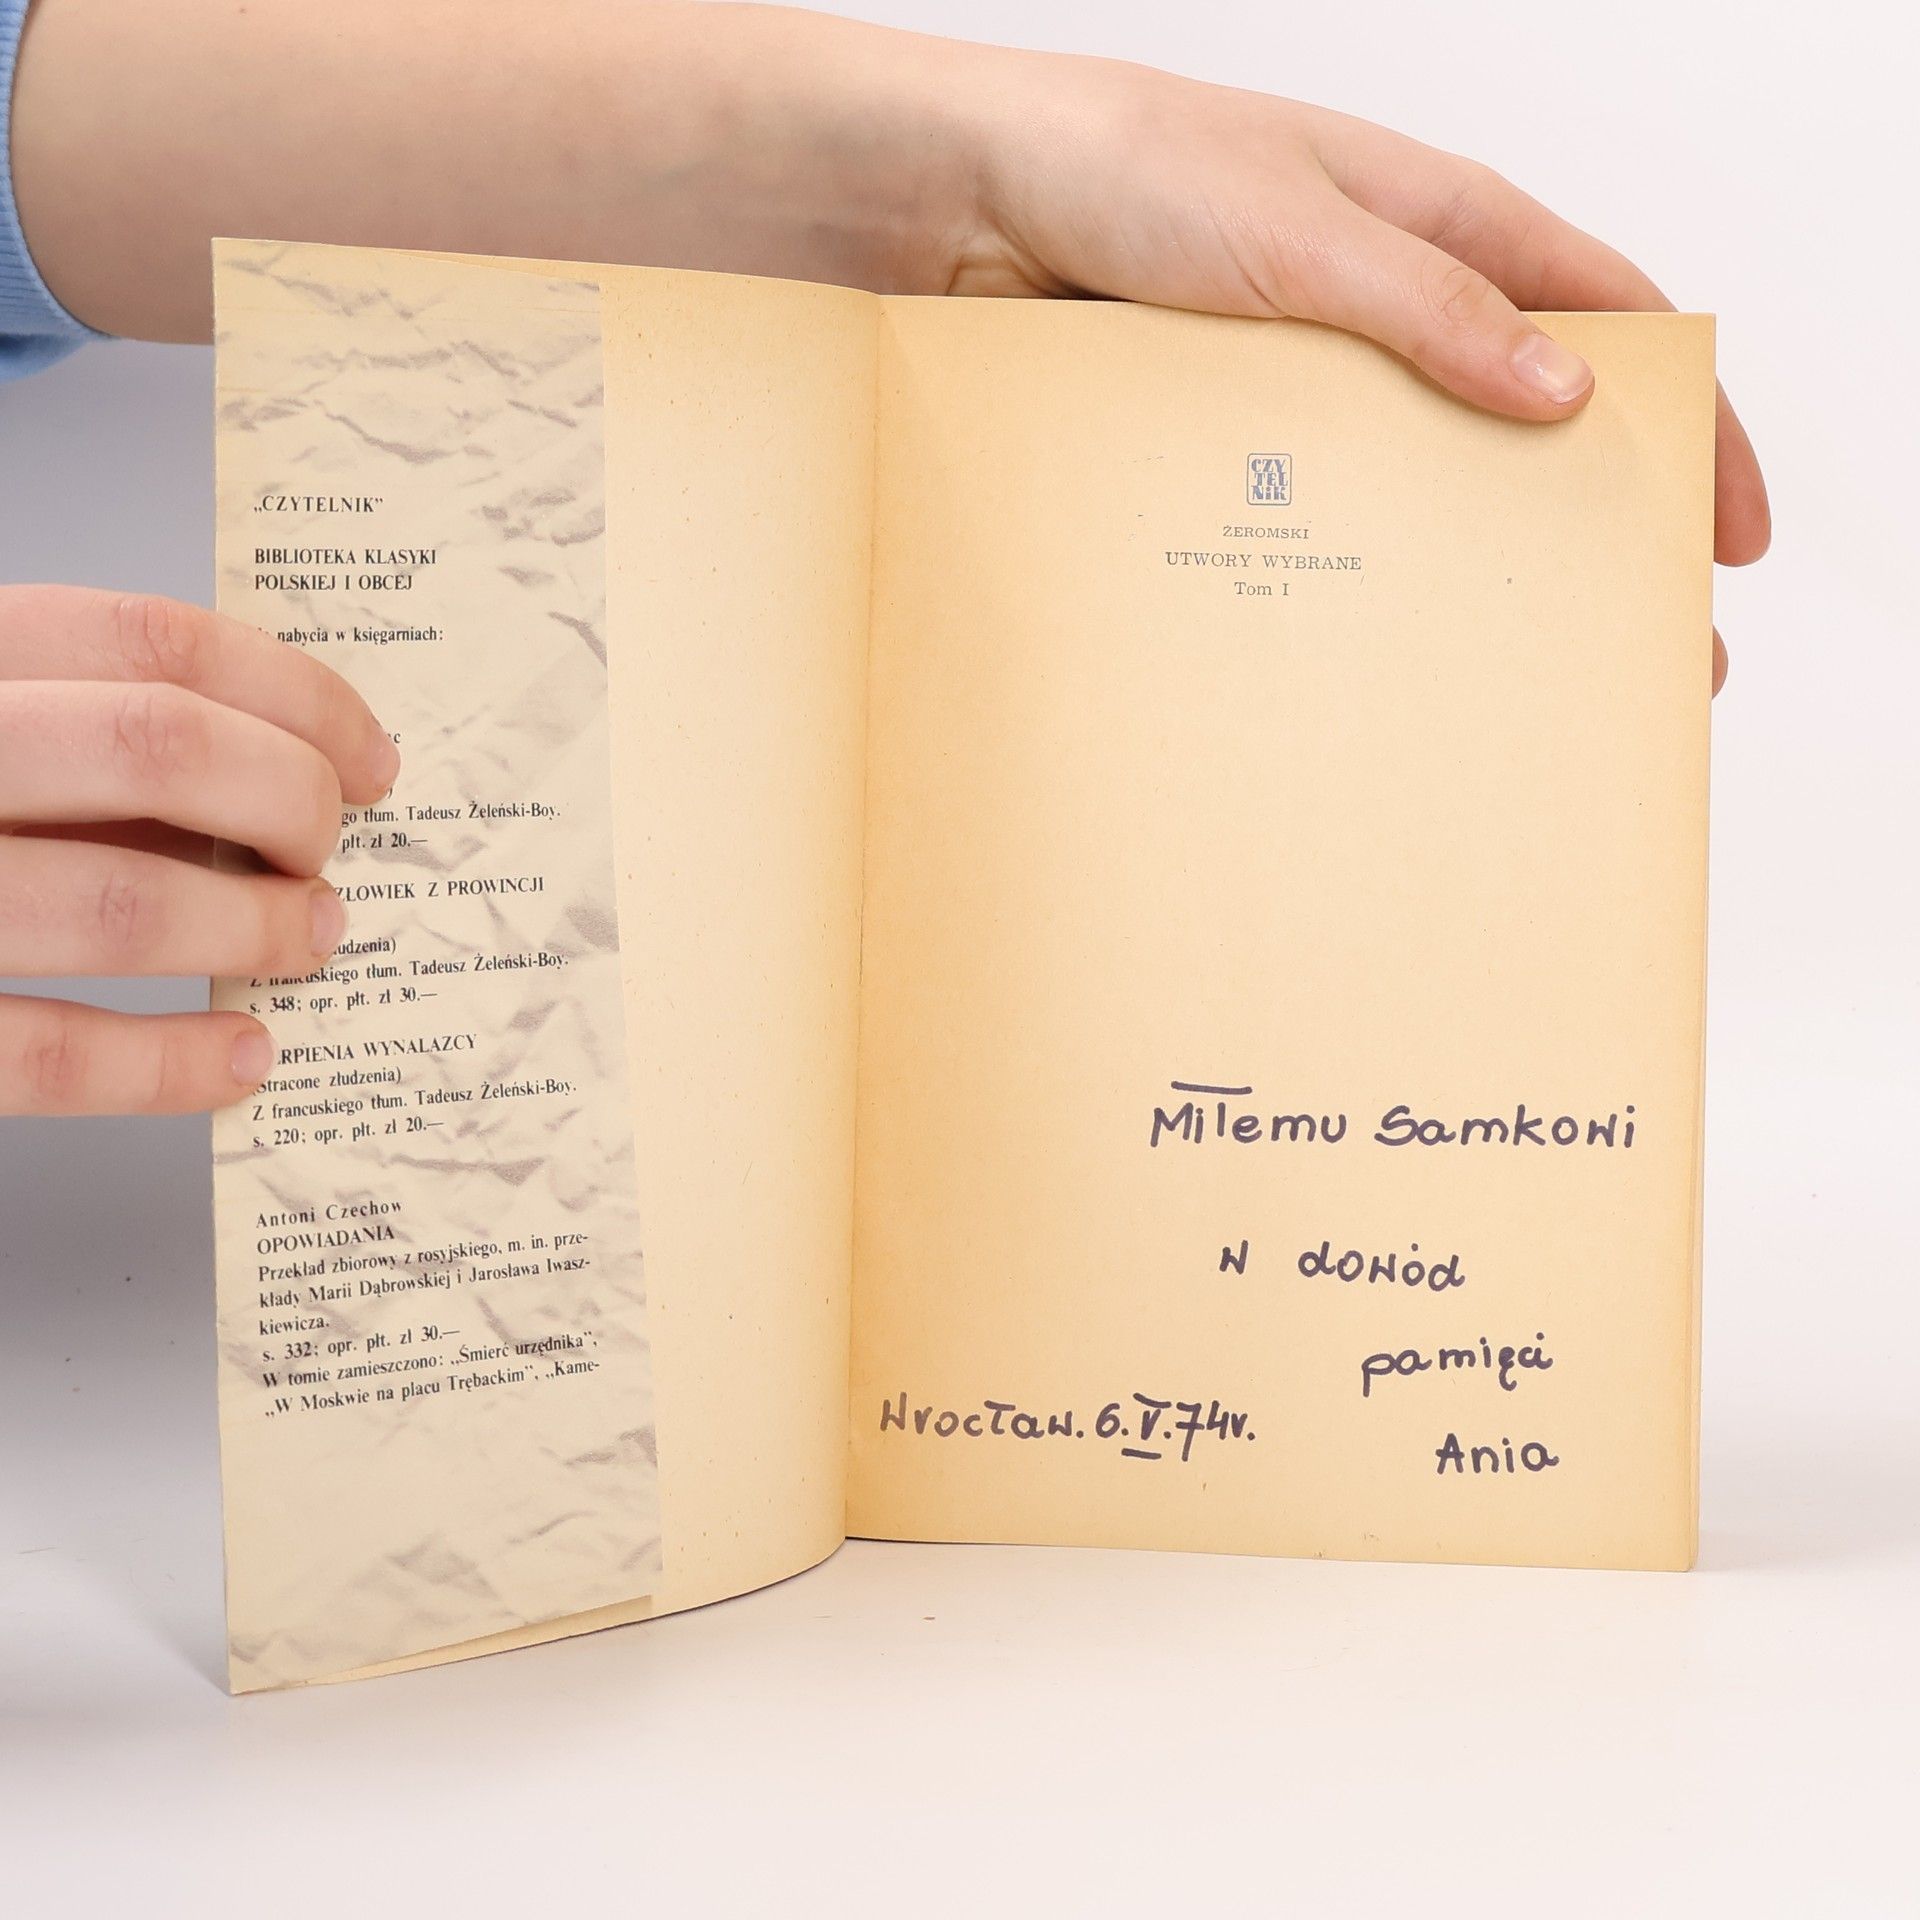 „CZYTELNIK”
BIBLIOTEKA KLASYKI
POLSKIEJ I OBCEJ
nabycia w księgarniach:
tłum. Tadeusz Żeleński-Boy.
płt. zł 20.—
Z PROWINCJI
Z francuskiego tłum. Tadeusz Żeleński-Boy.
s. 348; opr. płt. zł 30.—
WYNALAZCY
(Stracone złudzenia)
Z francuskiego tłum. Tadeusz Żeleński-Boy.
s. 220; opr. płt. zł 20.—
Antoni Czechow
OPOWIADANIA
Przekład zbiorowy z rosyjskiego, m. in. prze-
kłady Marii Dąbrowskiej i Jarosława Iwasz-
kiewicza.
s. 332; opr. płt. zł 30.—
W tomie zamieszczono: „Śmierć urzędnika”,
„W Moskwie na placu Trębackim”, „Kame-
CZY
TEL
NiK
ŻEROMSKI
UTWORY WYBRANE
Tom I
Miłemu Samkowi
w dowód
pamięci
Wrocław. 6.V.74r.
Ania